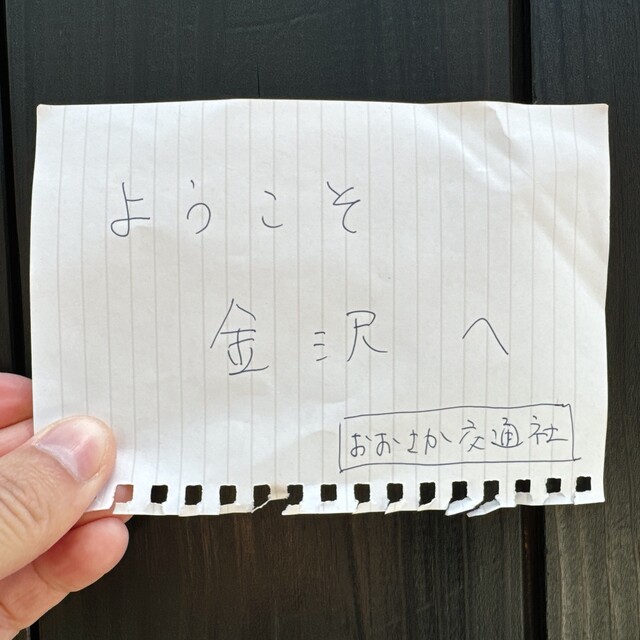 ようこそ
金沢へ
おおさか交通社